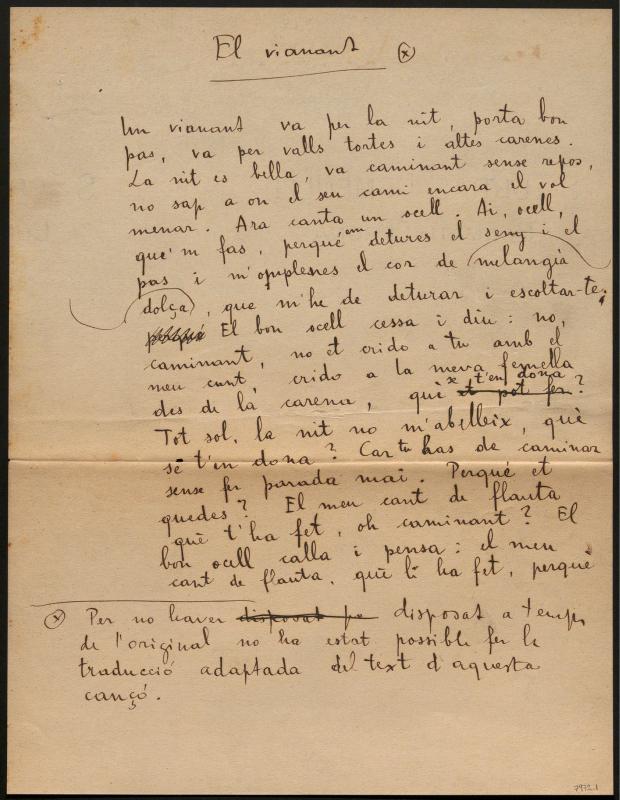 El vianant (x)
Un vianant va per la nit, porta bon
pas, va per valls tortes i altes carenes.
La nit es bella, va caminant sense repos,
no sap a on el seu cami encara el vol
menar. Ara canta un ocell. Ai, ocell,
que'm fas, perqué em detures el seny i el
pas i m'omplenes el cor de melangia
dolça, que m'he de deturar i escoltar-te;
El bon ocell cessa i diu: no,
caminant, no et crido a tu amb el
meu cant, crido a la meva femella
des de la carena, què x t'en dona
et pot fer?
Tot sol, la nit no m'abelleix, què
se t'en dona? Car tu has de caminar
sense fer parada mai. Perqué et
quedes? El meu cant de flauta
què t'ha fet, oh caminant? El
bon ocell calla i pensa: el meu
cant de flauta, què li ha fet, perquè
(x) Per no haver disposat pe disposat a temps
de l'original no ha estat possible fer la
traducció adaptada del text d'aquesta
cançó.
7972.1